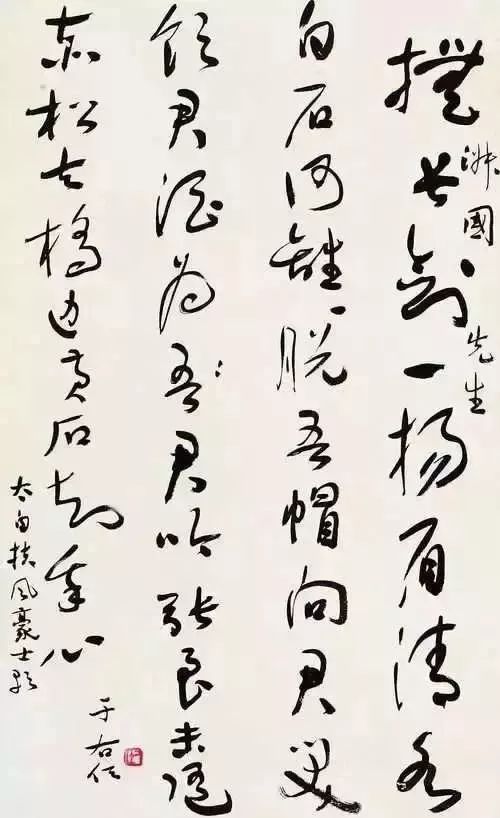 國先生
撫長劍一揚眉清水
白石何離々脫吾帽向君笑
飲君酒為吾君吟張良未逐
赤松去橋邊黃石知我心
太白扶風豪士歌
于右任